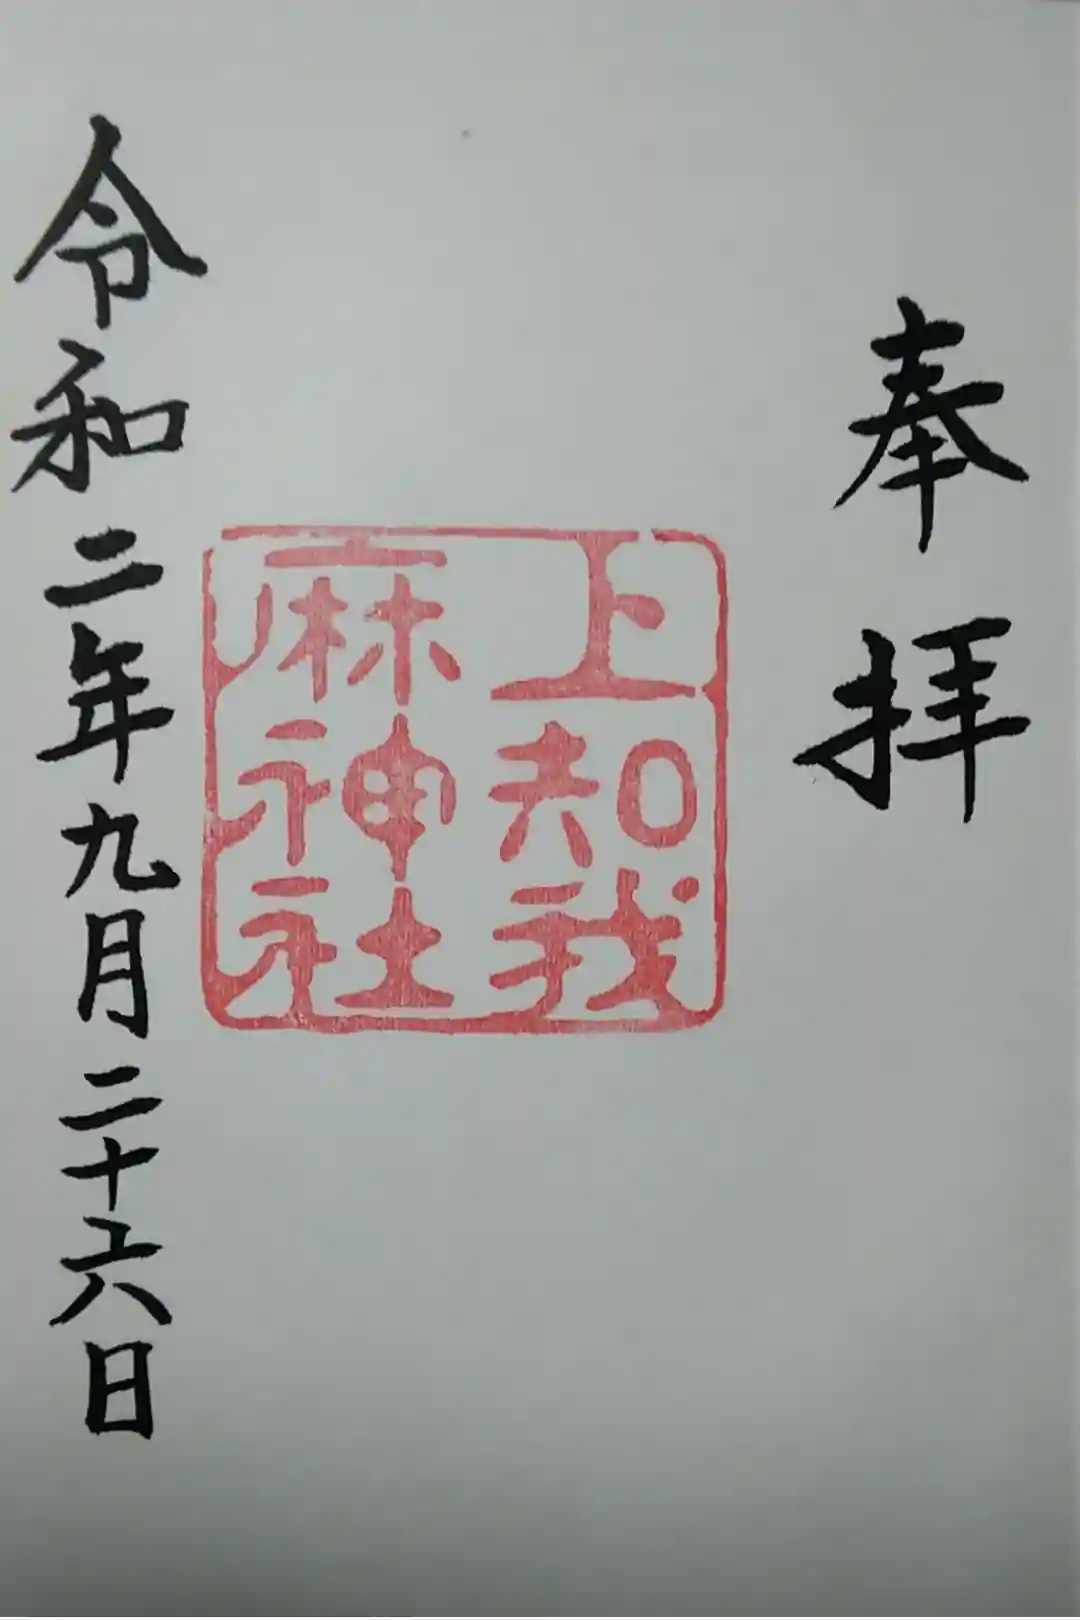 奉拝
上知我
麻神社
令和二年九月二十六日